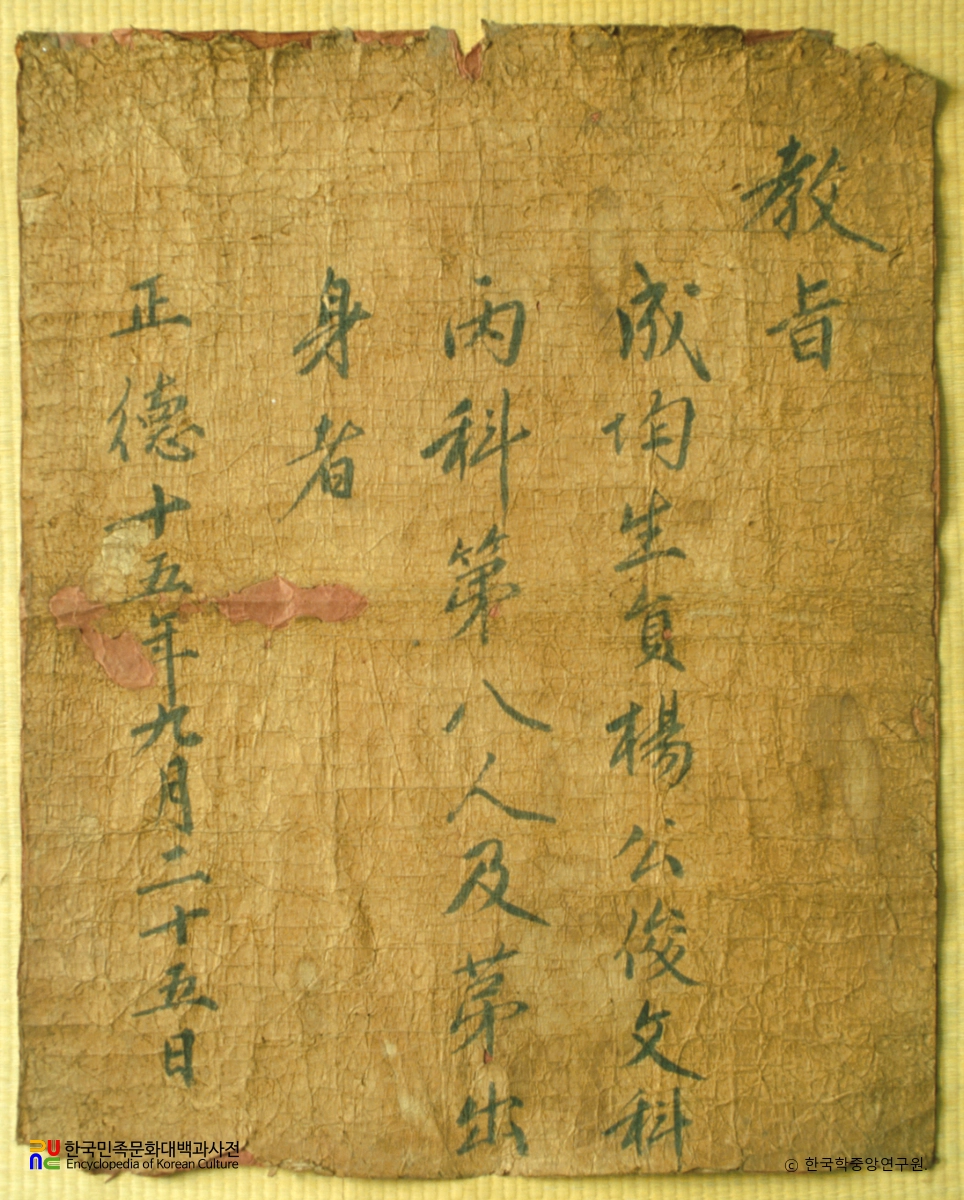 教旨
成均生員楊公俊文科
丙科第八人及第出
身者
正德十五年九月二十五日
한국민족문화대백과사전
Encyclopedia of Korean Culture
© 한국학중앙연구원